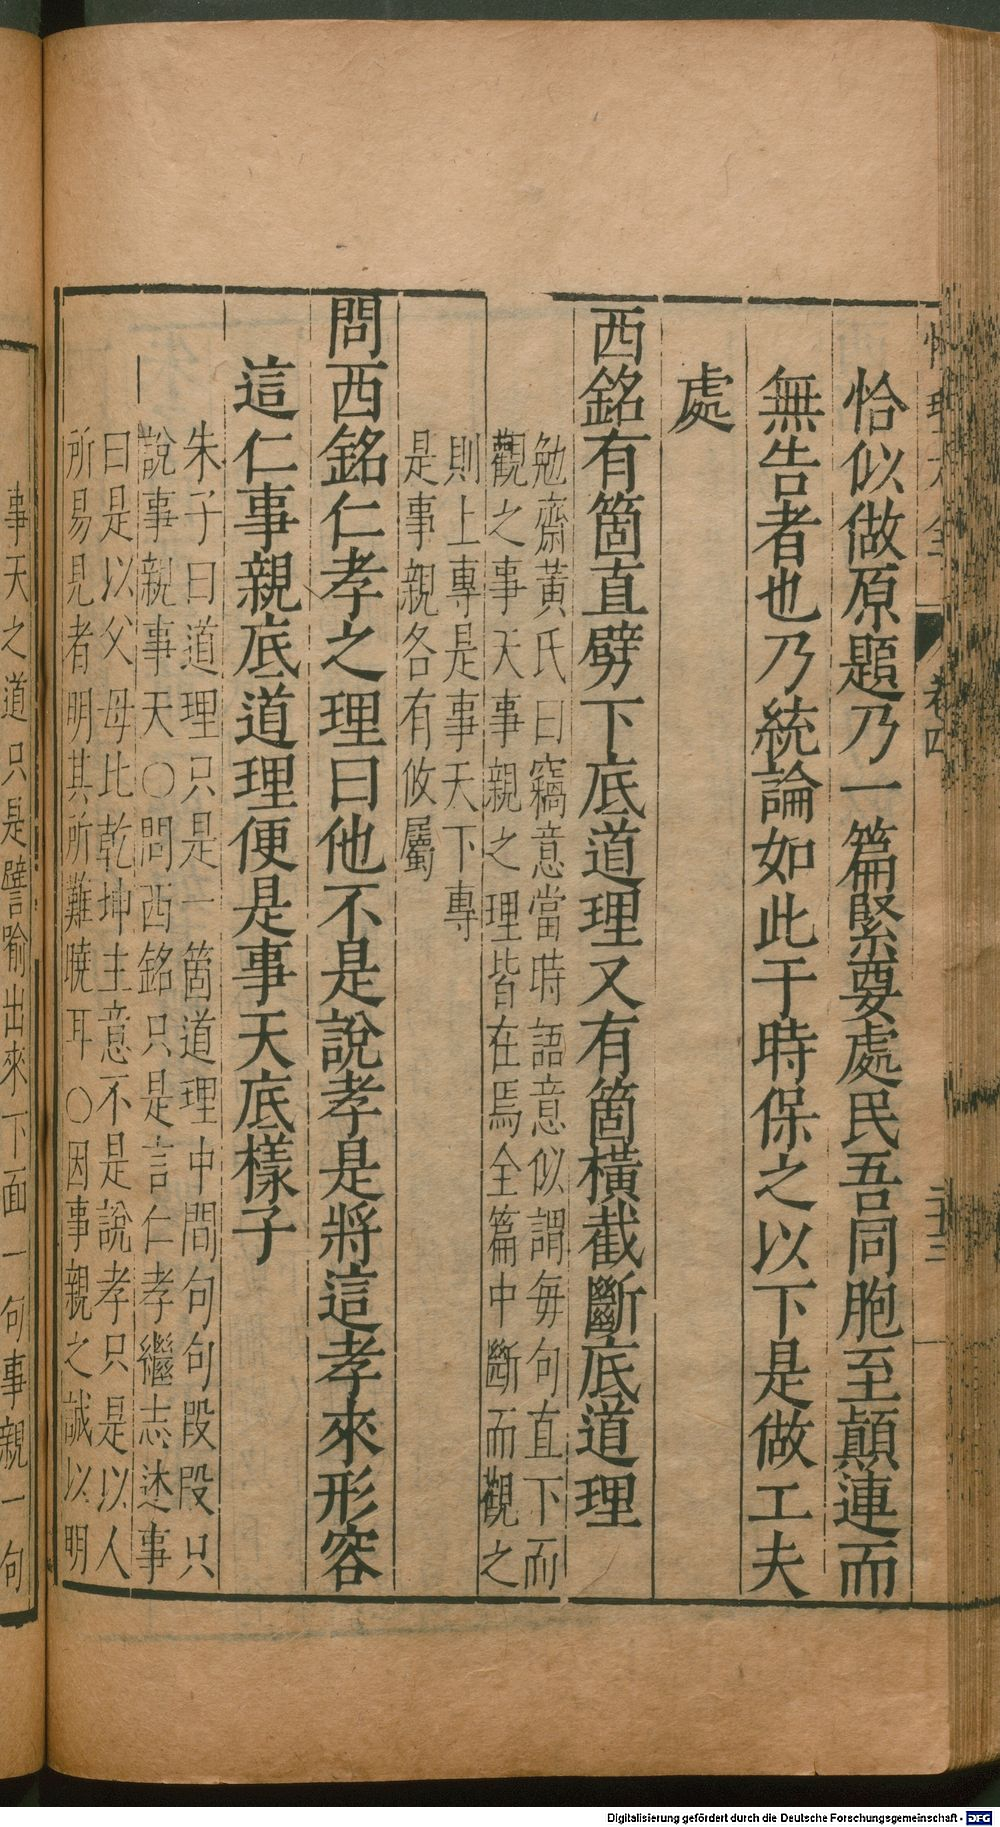 恰似做原題乃一篇緊要處民吾同胞至顛連而
無告者也乃統論如此于時保之以下是做工夫
處
西銘有箇直劈下底道理又有箇橫截斷底道理
勉齋黃氏曰竊意當時語意似謂每句直下而
觀之事天事親之理皆在焉全篇中斷而觀之
則上專是事天下專
是事親各有攸屬
問西銘仁孝之理曰他不是說孝是將這孝來形容
這仁事親底道理便是事天底樣子
朱子曰道理只是一箇道理中間句句段段只
說事親事天○問西銘只是言仁孝繼志述事
曰是以父母比乾坤主意不是說孝只是以人
所易見者明其所難曉耳○因事親之誠以明
事天之道只是譬喻出來下面一句事親一句
卷四
Digitalisierung gefördert durch die Deutsche Forschungsgemeinschaft - DFG